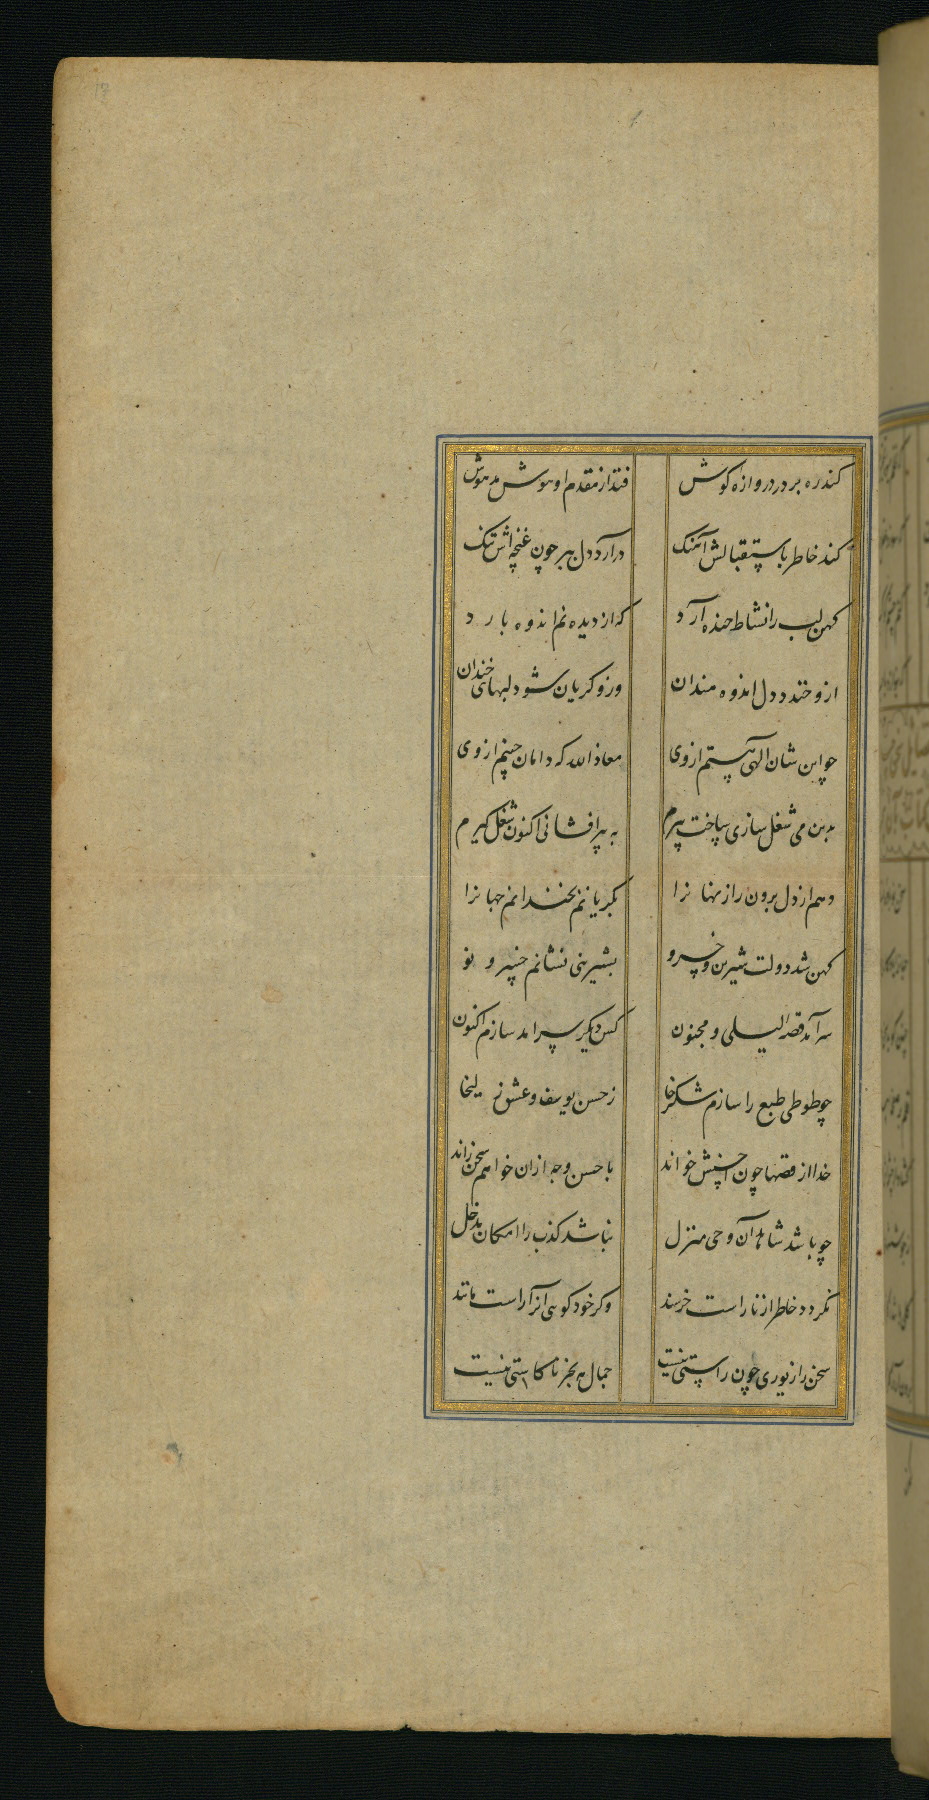 کند ره بر در دروازه کوش فتد از مقدم او هوش مدهوش
کند خاطر باستقبالش آهنک درآرد دل ببر چون غنچه اش تنک
کهی لب را نشاط خنده آرد که از دیده نم اندوه بارد
ازو خندد دل اندوه مندان وزو کریان شود لبهای خندان
چو این شان الهی هستم ازوی معاذ الله که دامان چینم ازوی
بدین می شغل سازی ساخت پیرم به پیرافشانی اکنون شغل کیرم
دهم از دل برون راز نهانرا بکریانم بخندانم جهانرا
کهن شد دولت شیرین و خسرو بشیرینی نشانم خسرو نو
سرآمد قصه لیلی و مجنون کس دیکر سرامد سازم اکنون
چو طوطی طبع را سازم شکرخا ز حسن یوسف و عشق زلیخا
خدا از قصها چون احسنش خواند باحسن وجه ازان خواهم سخن راند
چو باشد شاهد آن وحی منزل نباشد کذب را امکان مدخل
نکردد خاطر از ناراست خرسند وکر خود کوئی آنرا راست مانند
سخن را زیوری چون راستی نیست جمال مه بجز ناکاستی نیست